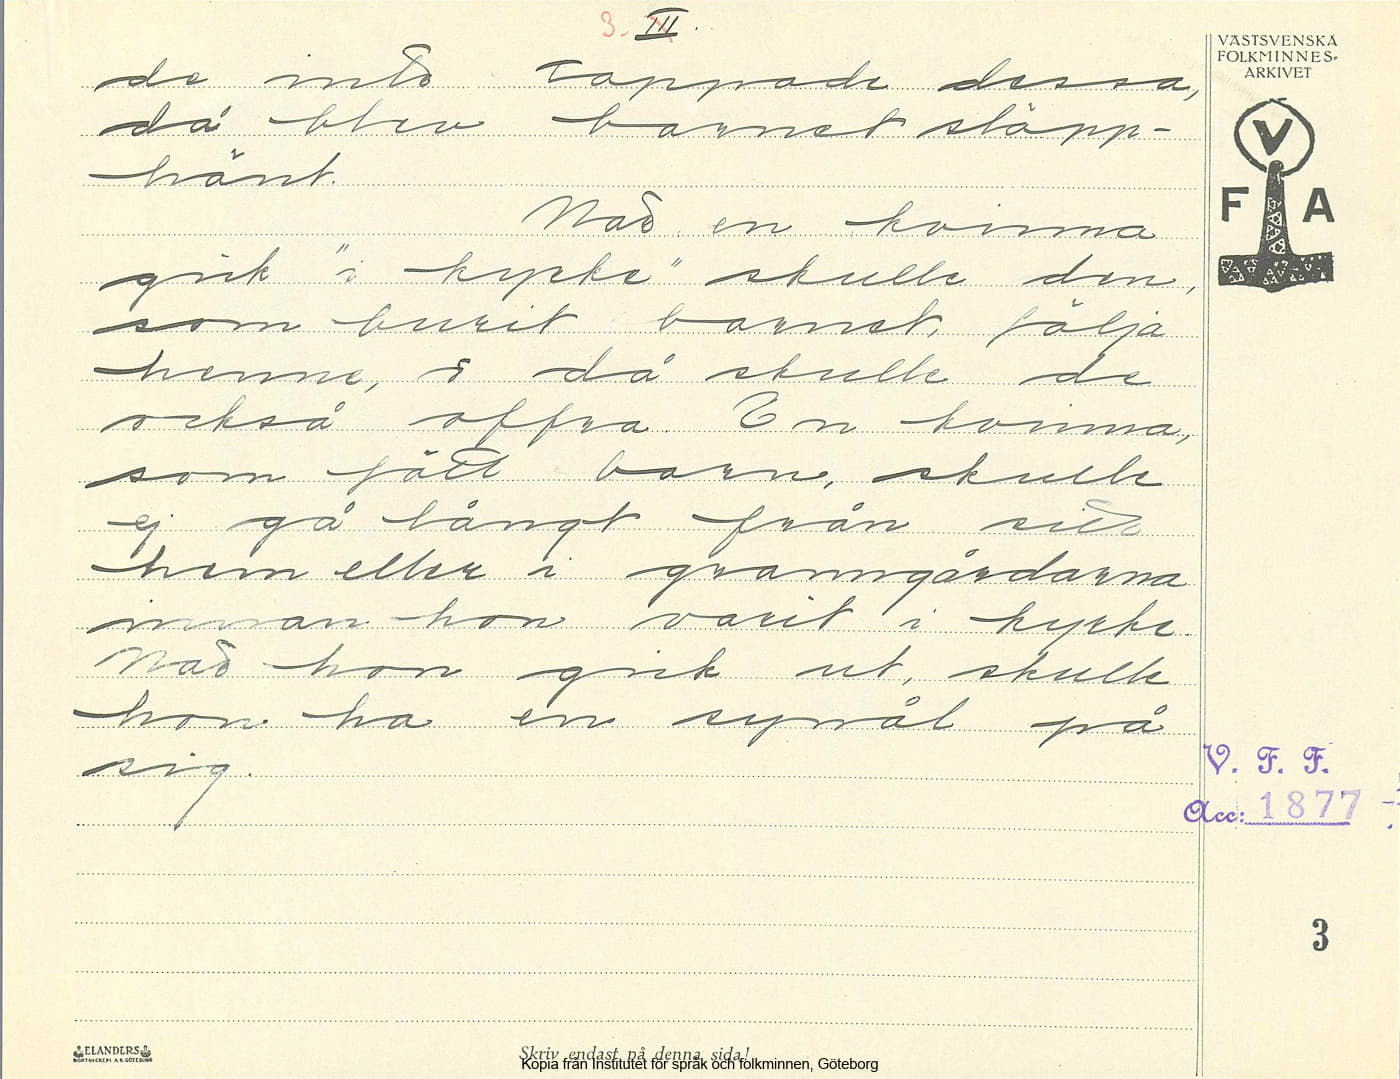 3. III.
VÄSTSVENSKA
FOLKMINNES-
ARKIVET
V
F A
de inte tappade dessa,
då blev barnet släpp-
hänt.
När en kvinna
gick "i kyrke" skulle den,
som burit barnet, följa
henne, o då skulle de
också offra. En kvinna,
som fått barn, skulle
ej gå långt från sitt
hem eller i granngårdarna
innan hon varit i kyrke.
När hon gick ut, skulle
hon ha en synål på
sig.
V. F. F.
Acc: 1877
3
ELANDERS
BOKTRYCKERI A.B. GÖTEBORG
Skriv endast på denna sida!
Kopia från Institutet för språk och folkminnen, Göteborg